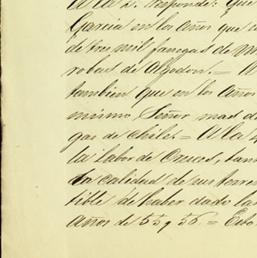 A la 2ª responde: que
Garcia en los años que
de tres mil fanegas de m
robas de Algodon.=
tambien que en los años
mismo Señor mas de
gas de chile.= A la
la labor de Cruces, tam
calidad de sus terre
tible de haber dado la
años de 55 y 56 = Esto